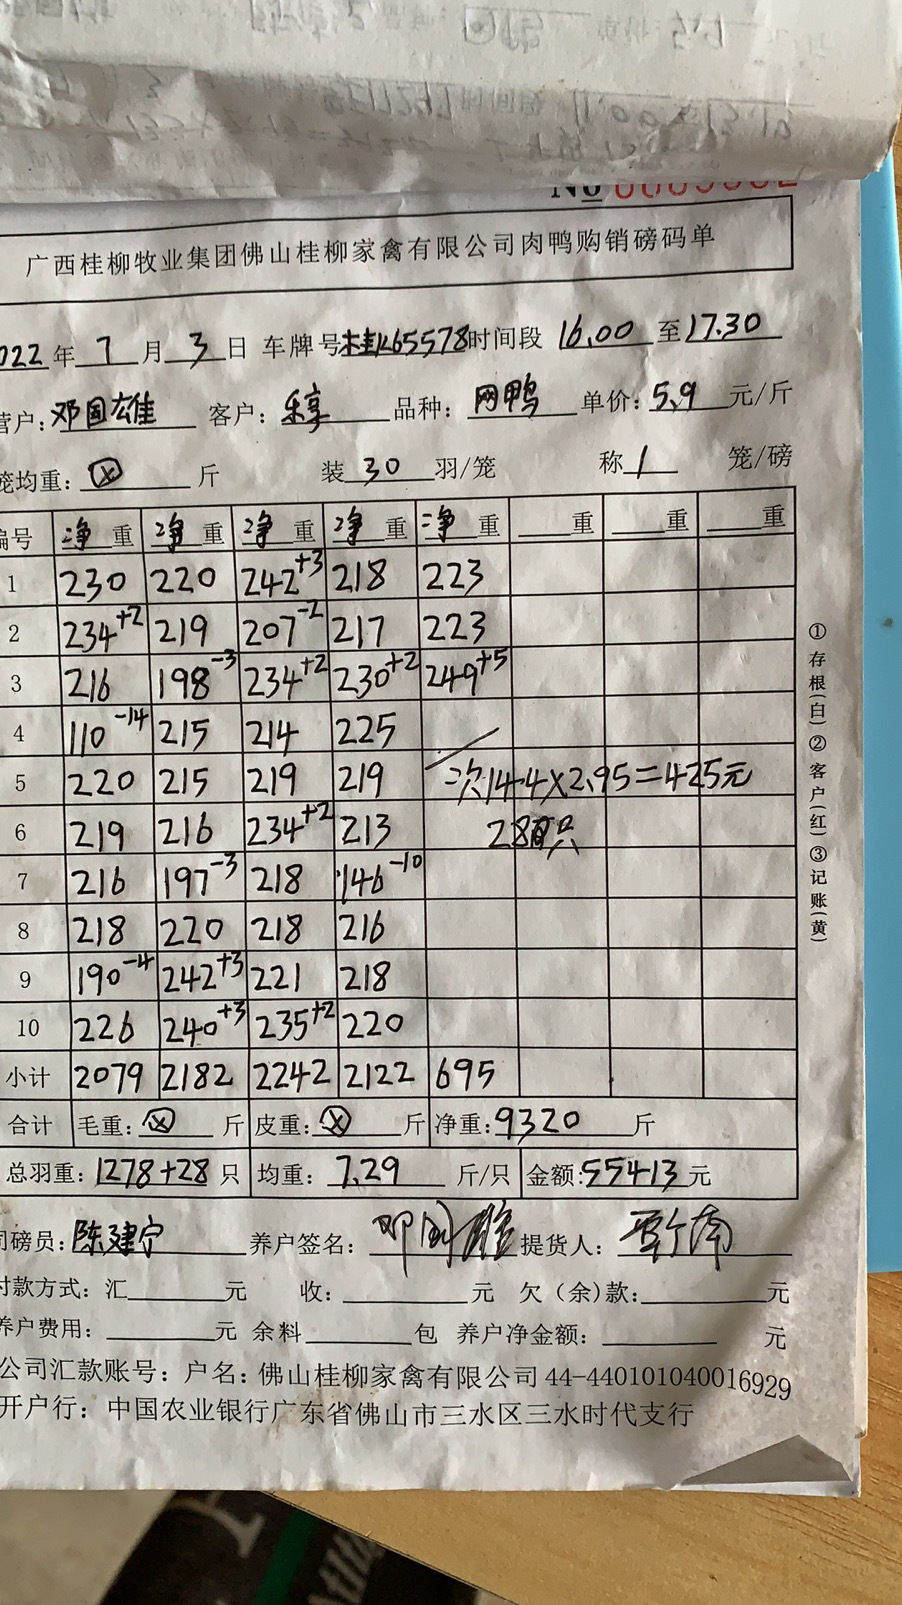 广西桂柳牧业集团佛山桂柳家禽有限公司肉鸭购销磅码单
022年7月3日 车牌号桂K65578时间段16.00至17.30
营户:邓国雄 客户:乐享 品种:网鸭 单价:5.9元/斤
笼均重:ⓧ斤 装30羽/笼 称1笼/磅
编号 净重 净重 净重 净重 净重 重 重 重
1 230 220 242+3 218 223
2 234+2 219 207-2 217 223
3 216 198-3 234+2 230+2 249+5
4 110-14 215 214 225
5 220 215 219 219 二次144×2.95=425元
6 219 216 234+2 213 28只
7 216 197-3 218 146-10
8 218 220 218 216
9 190-4 242+3 221 218
10 226 240+3 235+2 220
小计 2079 2182 2242 2122 695
合计 毛重:ⓧ斤 皮重:ⓧ斤 净重:9320斤
总羽重:1278+28只 均重:7.29斤/只 金额:55413元
司磅员:陈建宁 养户签名:邓国雄 提货人:
付款方式:汇 元 收: 元 欠(余)款: 元
养户费用: 元 余料 包 养户净金额: 元
公司汇款账号:户名:佛山桂柳家禽有限公司44-440101040016929
开户行:中国农业银行广东省佛山市三水区三水时代支行
①存根(白)②客户(红)③记账(黄)